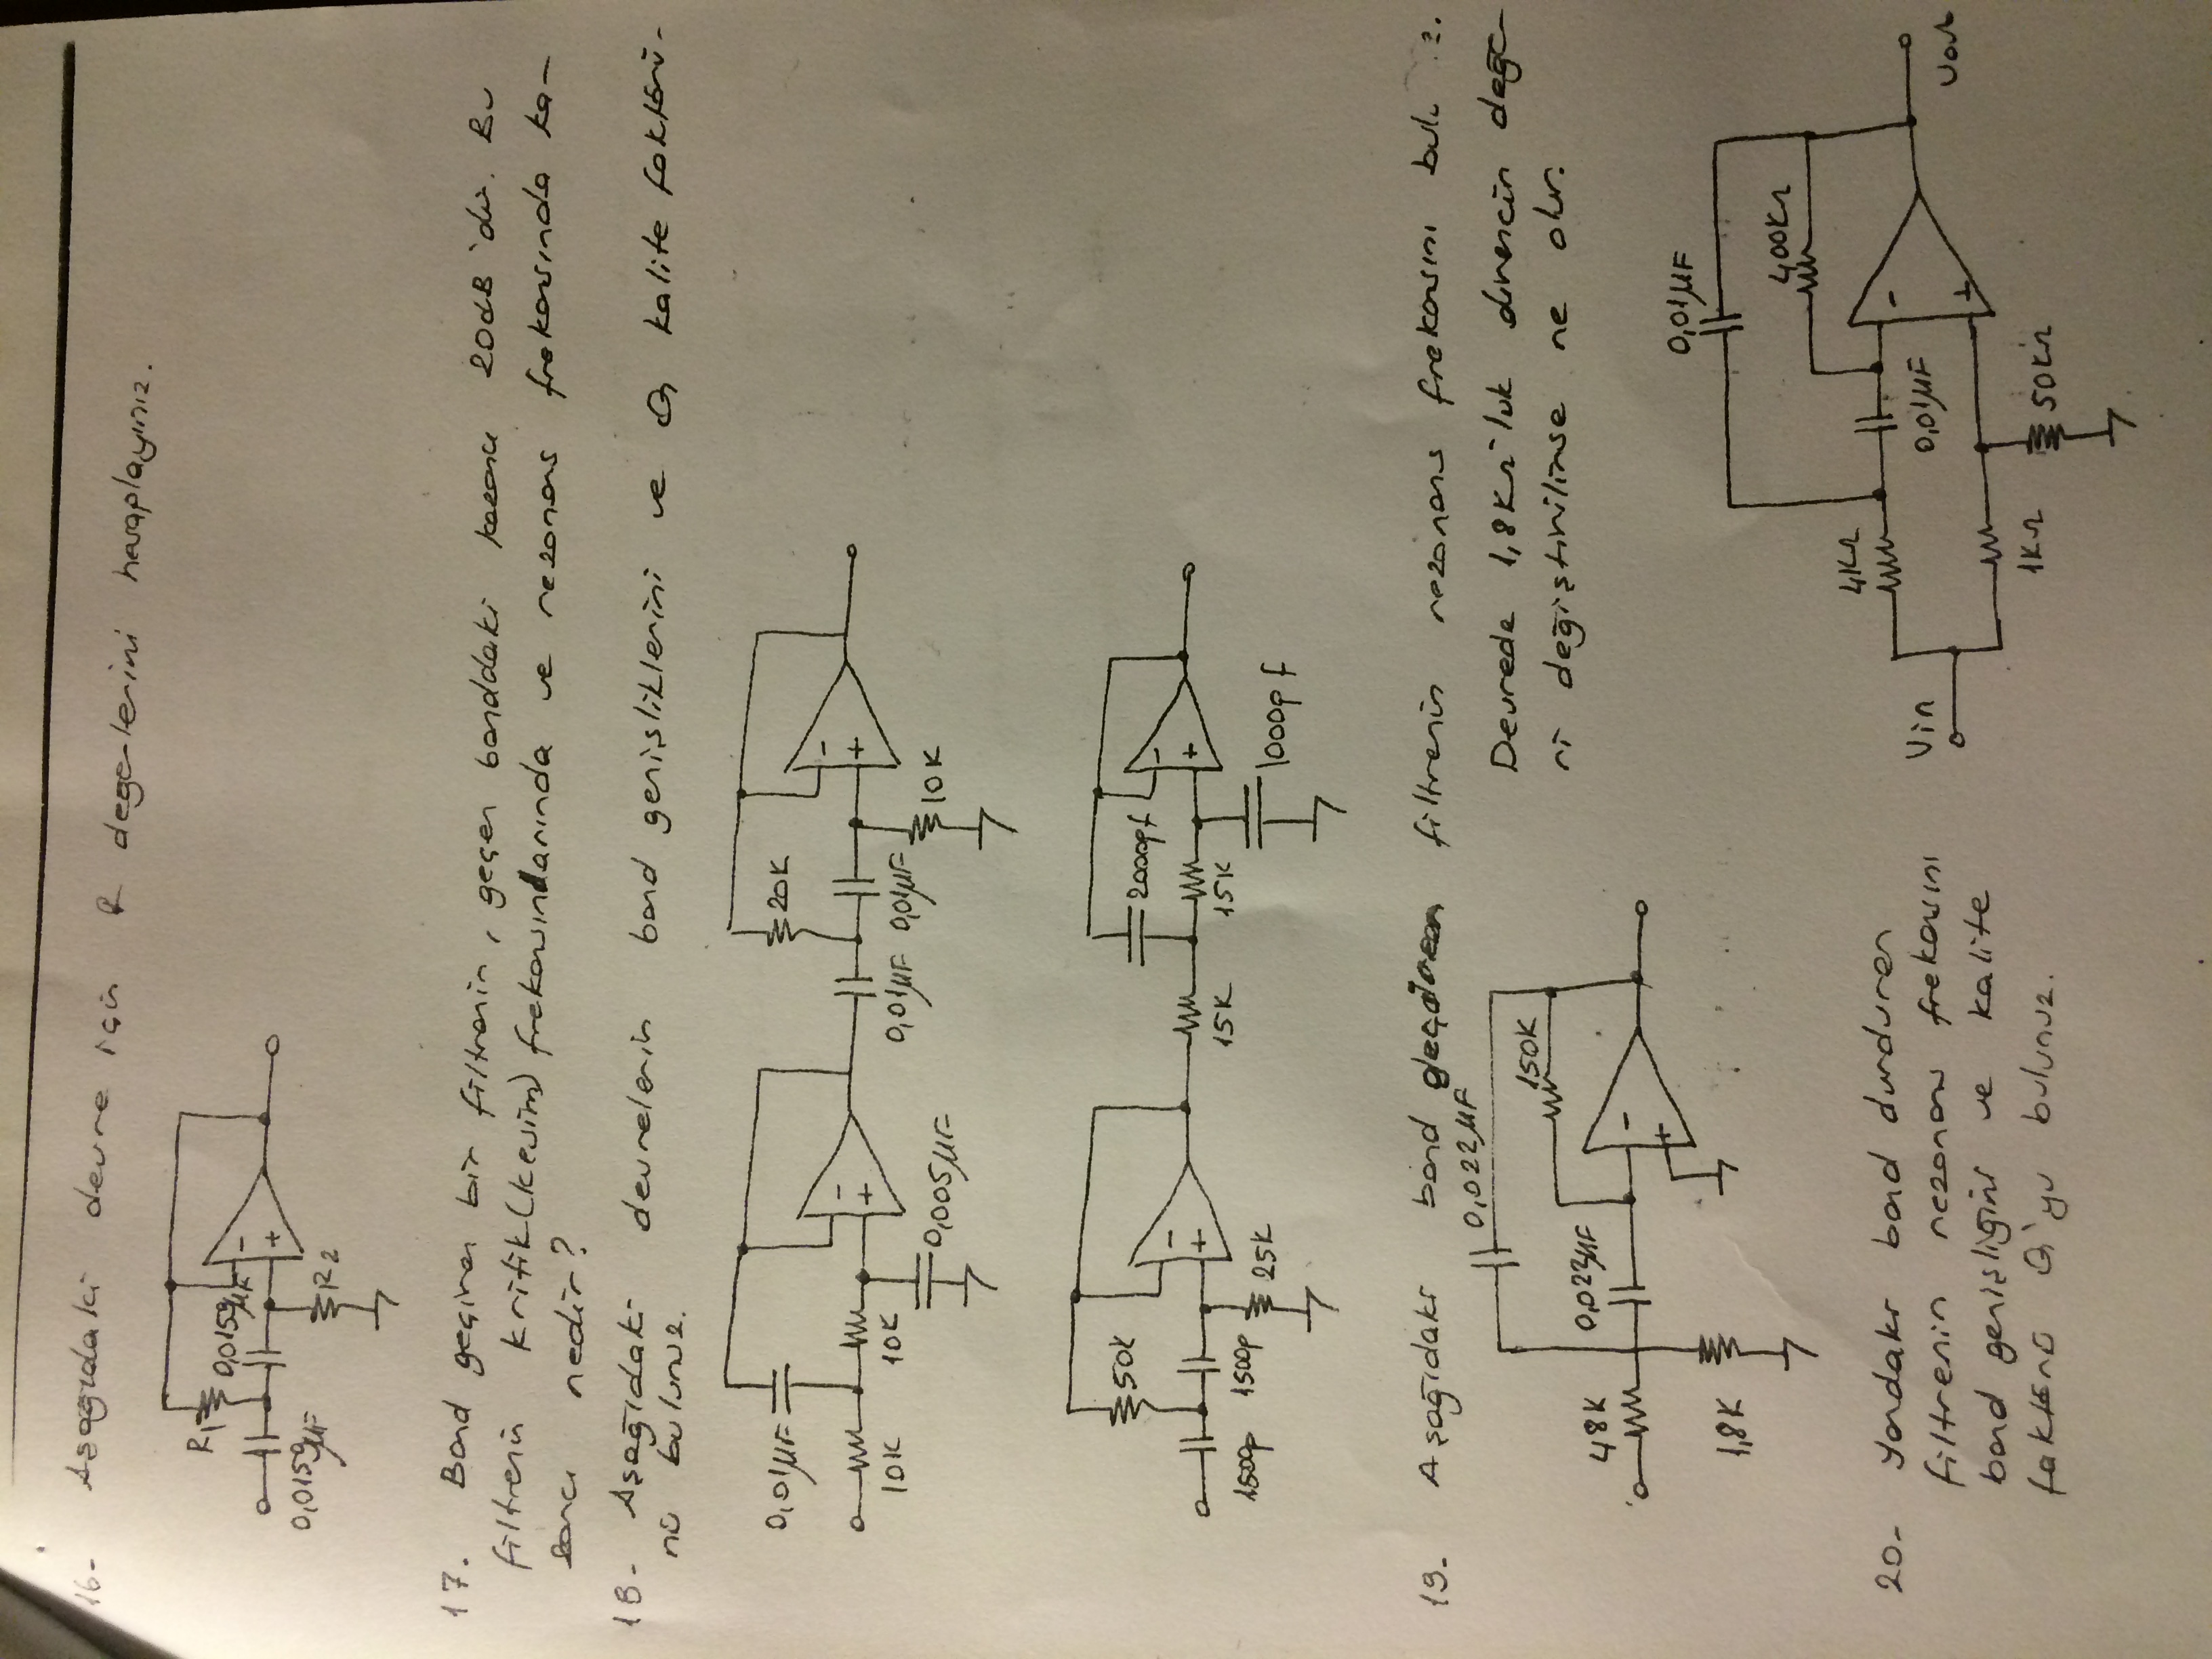 16- Aşağıdaki devre için R değerlerini hesaplayınız.
R1
0,0159µF
-
+
0,0159µF
R2
17. Band geçiren bir filtrenin, geçen banddaki kazancı 20dB'dir. Bu
filtrenin kritik(kesim) frekanslarında ve rezonans frekansında ka-
zancı nedir?
18- Aşağıdaki devrelerin band genişliklerini ve Q kalite faktörü-
nü bulunuz.
0,01µF
20K
-
+
-
+
10K 10K
0,01µF 0,01µF
0,005µF
10K
50K
2000pf
-
+
-
+
1500p 1500p
25K
15K 15K
1000pf
19. Aşağıdakı band geçiren filtrenin rezonans frekansını
0,022µF
Devrede 1,8KΩ'luk direncin değe-
ri değiştirilirse ne olur.
150K
48K
0,022µF
-
+
1,8K
0,01µF
400KΩ
4KΩ
-
+
0,01µF
Vin
Vout
1KΩ
50KΩ
20- Yandakı band durduren
filtrenin rezonans frekansını
band genişliğini ve kalite
faktörü Q'yu bulunuz.